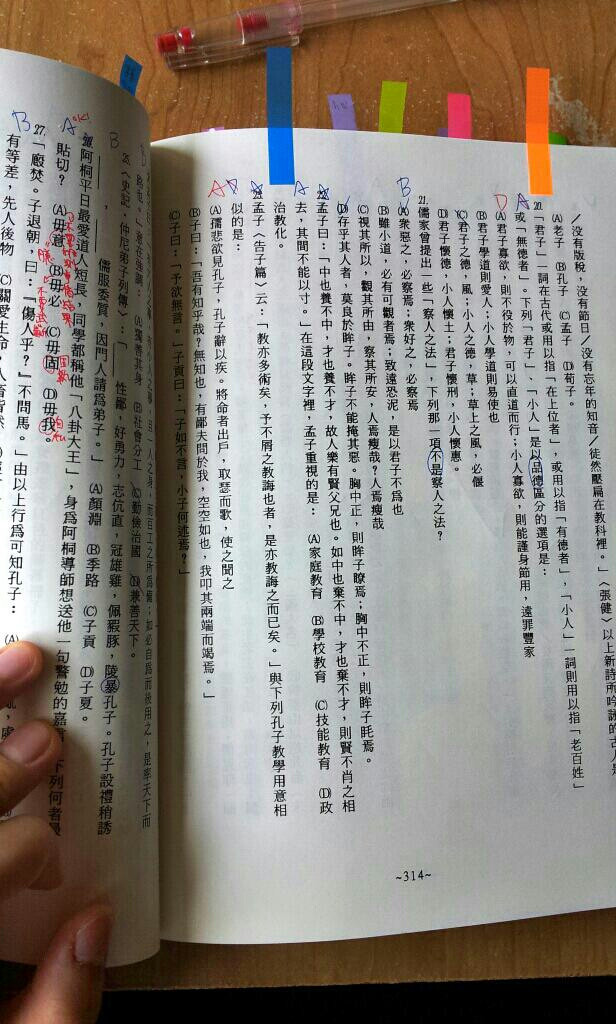 ／沒有版稅，沒有節日／沒有忘年的知音／徒然壓扁在教科裡。」〈張健〉以上新詩所吟詠的古人是
(A)老子 (B)孔子 (C)孟子 (D)荀子。
D A 20.「君子」一詞在古代或用以指「在上位者」，或用以指「有德者」，「小人」一詞則用以指「老百姓」
或「無德者」。下列「君子」、「小人」是以品德區分的選項是：
(A)君子寡欲，則不役於物，可以直道而行；小人寡欲，則能謹身節用，遠罪豐家
(B)君子學道則愛人；小人學道則易使也
(C)君子之德，風；小人之德，草；草上之風，必偃
(D)君子懷德，小人懷土；君子懷刑，小人懷惠。
B 21.儒家曾提出一些「察人之法」，下列那一項不是察人之法？
(A)眾惡之，必察焉；眾好之，必察焉
(B)雖小道，必有可觀者焉；致遠恐泥，是以君子不為也
(C)視其所以，觀其所由，察其所安，人焉廋哉？人焉廋哉
(D)存乎其人者，莫良於眸子。眸子不能掩其惡。胸中正，則眸子瞭焉；胸中不正，則眸子眊焉。
A 孟子曰：「中也養不中，才也養不才，故人樂有賢父兄也。如中也棄不中，才也棄不才，則賢不肖之相
去，其間不能以寸。」在這段文字裡，孟子重視的是： (A)家庭教育 (B)學校教育 (C)技能教育 (D)政
治教化。
A 孟子〈告子篇〉云：「教亦多術矣，予不屑之教誨也者，是亦教誨之而已矣。」與下列孔子教學用意相
似的是：
(A)孺悲欲見孔子，孔子辭以疾。將命者出戶，取瑟而歌，使之聞之
(B)子曰：「吾有知乎哉？無知也，有鄙夫問於我，空空如也，我叩其兩端而竭焉。」
(C)子曰：「予欲無言。」子貢曰：「子如不言，小子何述焉？」
~314~
且一人之身，而百工之所為備；如必自為而後用之，是率天下而
路也。」意在強調： (A)獨善其身 (B)社會分工 (C)勤儉治國 (D)兼善天下。
B 25.〈史記‧仲尼弟子列傳〉：「 性鄙，好勇力，志伉直，冠雄雞，佩豭豚，陵暴孔子。孔子設禮稍誘
， 儒服委質，因門人請為弟子。」 (A)顏淵 (B)季路 (C)子貢 (D)子夏。
A 26.阿桐平日最愛道人短長，同學都稱他「八卦大王」，身為阿桐導師想送他一句警勉的嘉言，下列何者最
貼切？ (A)毋意 (B)毋必 (C)毋固 (D)毋我。
B 27.「廄焚。子退朝，曰：『傷人乎？』不問馬。」由以上行為可知孔子： (A)
有等差，先人後物 (C)關愛生命，